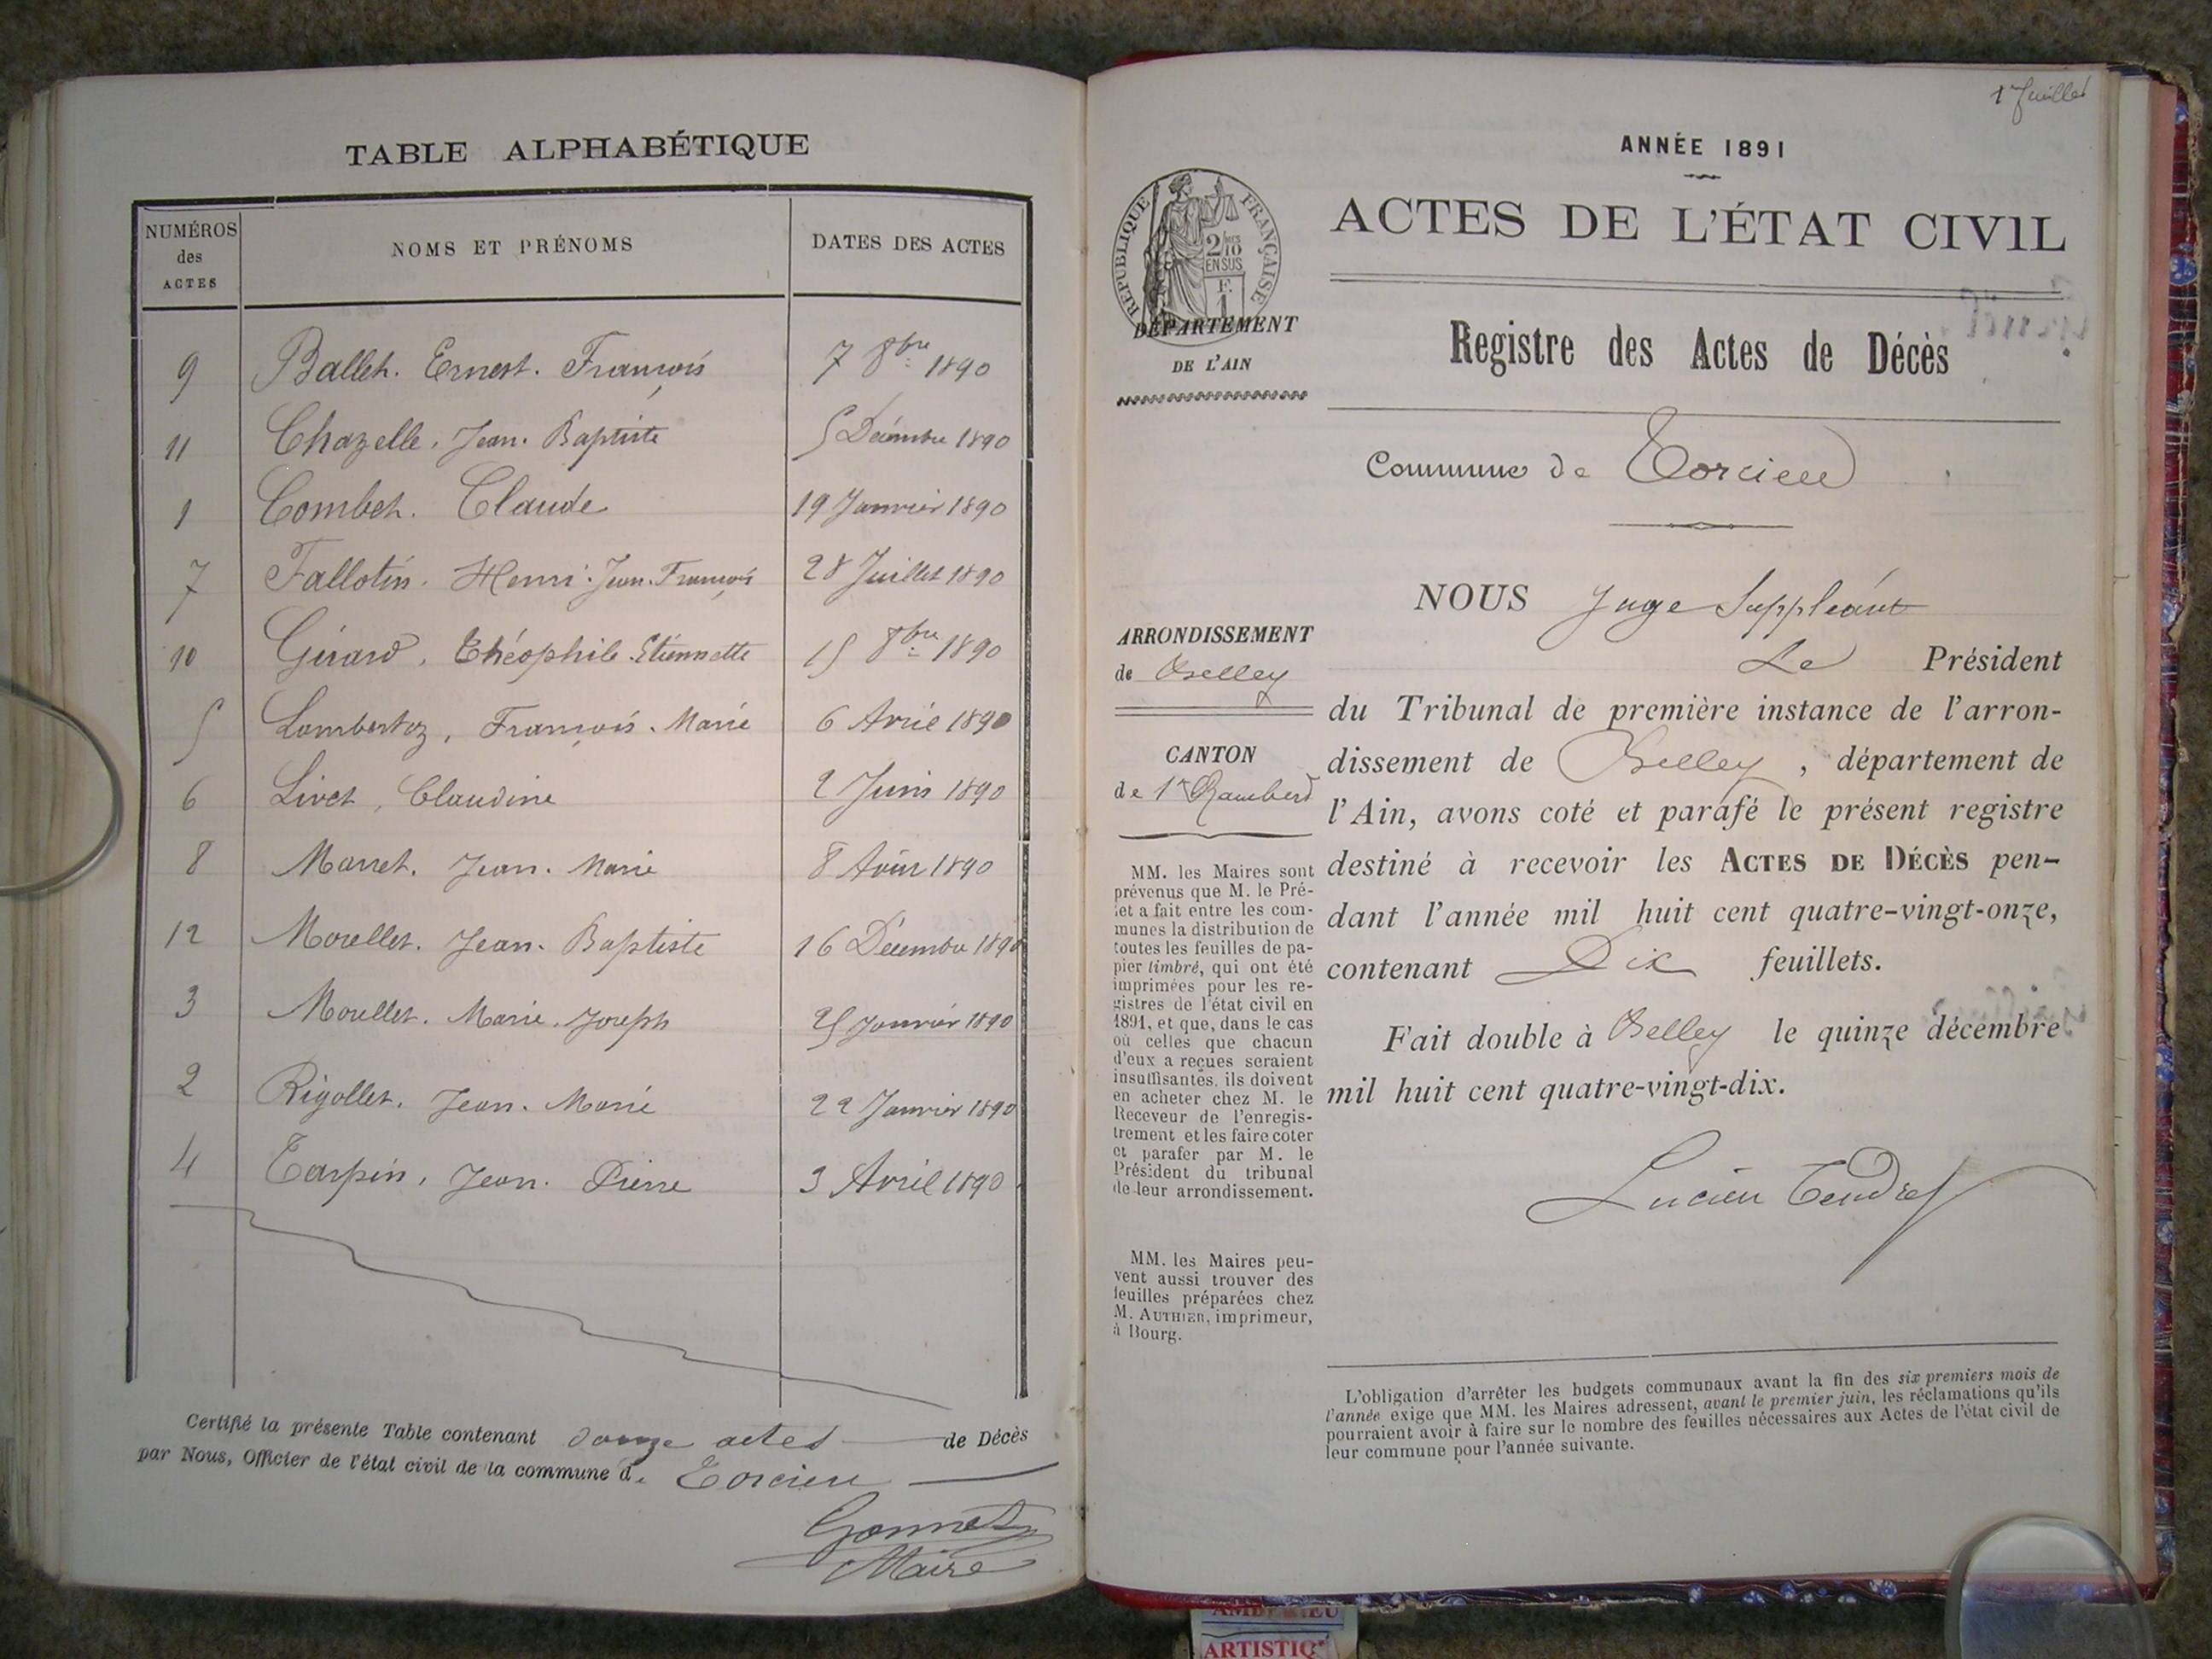 TABLE ALPHABÉTIQUE
NUMÉROS des ACTES
NOMS ET PRÉNOMS
DATES DES ACTES
9 Ballet. Ernest. François 7 8bre 1890
11 Chazelle, Jean. Baptiste 5 Décembre 1890
1 Combet. Claude 19 Janvier 1890
7 Fallotin. Henri. Jean. François 28 Juillet 1890
10 Girard, Théophile. Etiennette 15 8bre 1890
5 Lombertoz, François. Marie 6 Avril 1890
6 Livet, Claudine 2 Juin 1890
8 Marret. Jean. Marie 8 Août 1890
12 Morellet. Jean. Baptiste 16 Décembre 1890
3 Morellet. Marie. Joseph 25 Janvier 1890
2 Rigollet. Jean. Marie 22 Janvier 1890
4 Tarpin, Jean. Pierre 3 Avril 1890
Certifié la présente Table contenant douze actes de Décès
par Nous, Officier de l'état civil de la commune d. Torcieu
Gonnet
Maire
1r feuillet
ANNÉE 1891
ACTES DE L'ÉTAT CIVIL
RÉPUBLIQUE FRANÇAISE
2/10 EN SUS
F. 1
DÉPARTEMENT
DE L'AIN
Registre des Actes de Décès
Commune de Torcieu
ARRONDISSEMENT
de Belley
CANTON
de St Rambert
MM. les Maires sont
prévenus que M. le Pré-
fet a fait entre les com-
munes la distribution de
toutes les feuilles de pa-
pier timbré, qui ont été
imprimées pour les re-
gistres de l'état civil en
1891, et que, dans le cas
où celles que chacun
d'eux a reçues seraient
insuffisantes, ils doivent
en acheter chez M. le
Receveur de l'enregis-
trement et les faire coter
et parafer par M. le
Président du tribunal
de leur arrondissement.
MM. les Maires peu-
vent aussi trouver des
feuilles préparées chez
M. AUTHIER, imprimeur,
à Bourg.
NOUS Juge Suppléant
Le Président
du Tribunal de première instance de l'arron-
dissement de Belley, département de
l'Ain, avons coté et parafé le présent registre
destiné à recevoir les ACTES DE DÉCÈS pen-
dant l'année mil huit cent quatre-vingt-onze,
contenant Dix feuillets.
Fait double à Belley le quinze décembre
mil huit cent quatre-vingt-dix.
Lucien Tendret
L'obligation d'arrêter les budgets communaux avant la fin des six premiers mois de
l'année exige que MM. les Maires adressent, avant le premier juin, les réclamations qu'ils
pourraient avoir à faire sur le nombre des feuilles nécessaires aux Actes de l'état civil de
leur commune pour l'année suivante.
ARTISTIQ